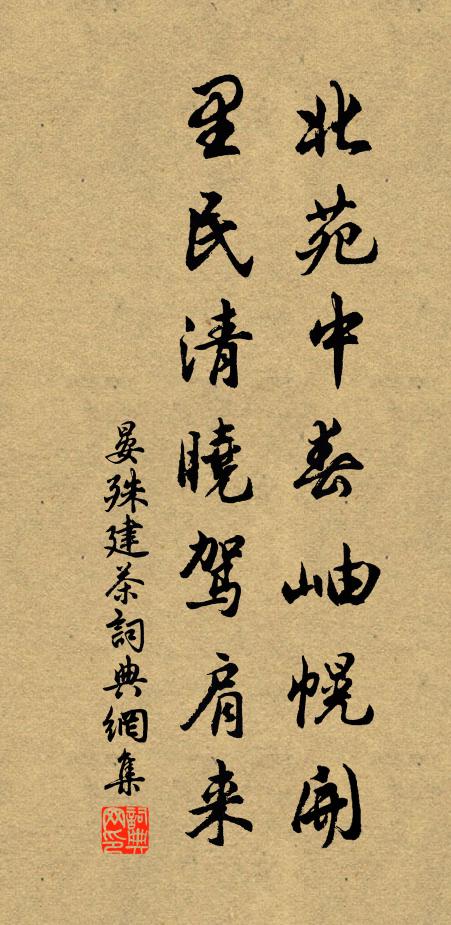 北苑中春岫幌開
里民清曉駕肩来
晏殊建茶詞典網集
詞典网印